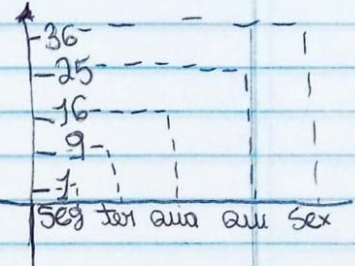 36
25
16
9
1
Seg ter qua qui Sex